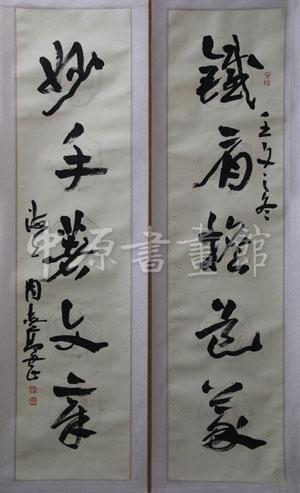 鐵肩擔道義
之冬
妙手著文章
海上周志高
中原書畫館